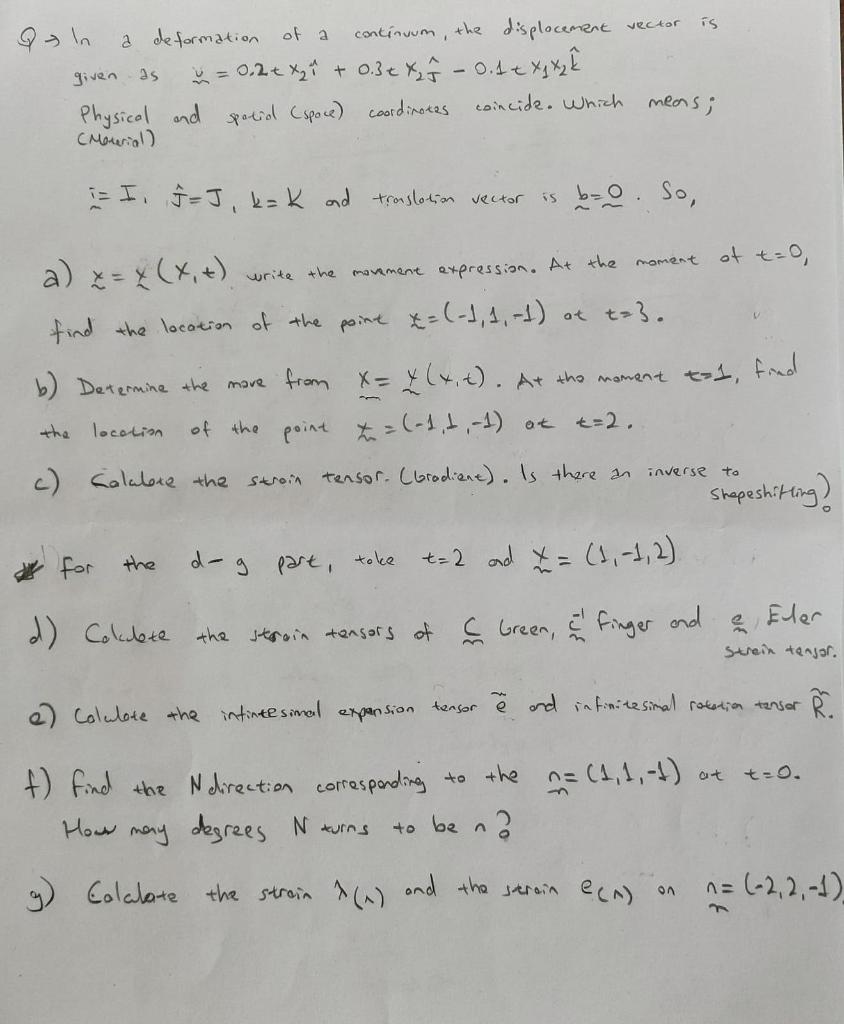 Q → In a deformation of a continuum, the displacement vector is
given as u = 0.2t x₂î + 0.3t x₂ĵ - 0.1t x₁x₂k̂
Physical and spatial (space) coordinates coincide. Which means;
(Material)
i = I, ĵ = J, k = K and translation vector is b=0. So,
a) x = x(X,t) write the movement expression. At the moment of t=0,
find the location of the point x=(-1,1,-1) at t=3.
b) Determine the move from X = X(x,t). At the moment t=1, find
the location of the point x=(-1,1,-1) at t=2.
c) Calculate the strain tensor. (Gradient). Is there an inverse to
shapeshifting?
* for the d-g part, take t=2 and x = (1,-1,2)
d) Calculate the strain tensors of C Green, c⁻¹ finger and e Euler
strein tensor.
e) Calculate the infintesimal expansion tensor ẽ and infinitesimal rotation tensor R̃.
f) find the N direction corresponding to the n=(1,1,-1) at t=0.
How many degrees N turns to be n?
g) Calculate the strain λ(n) and the strein e(n) on n=(-2,2,-1)